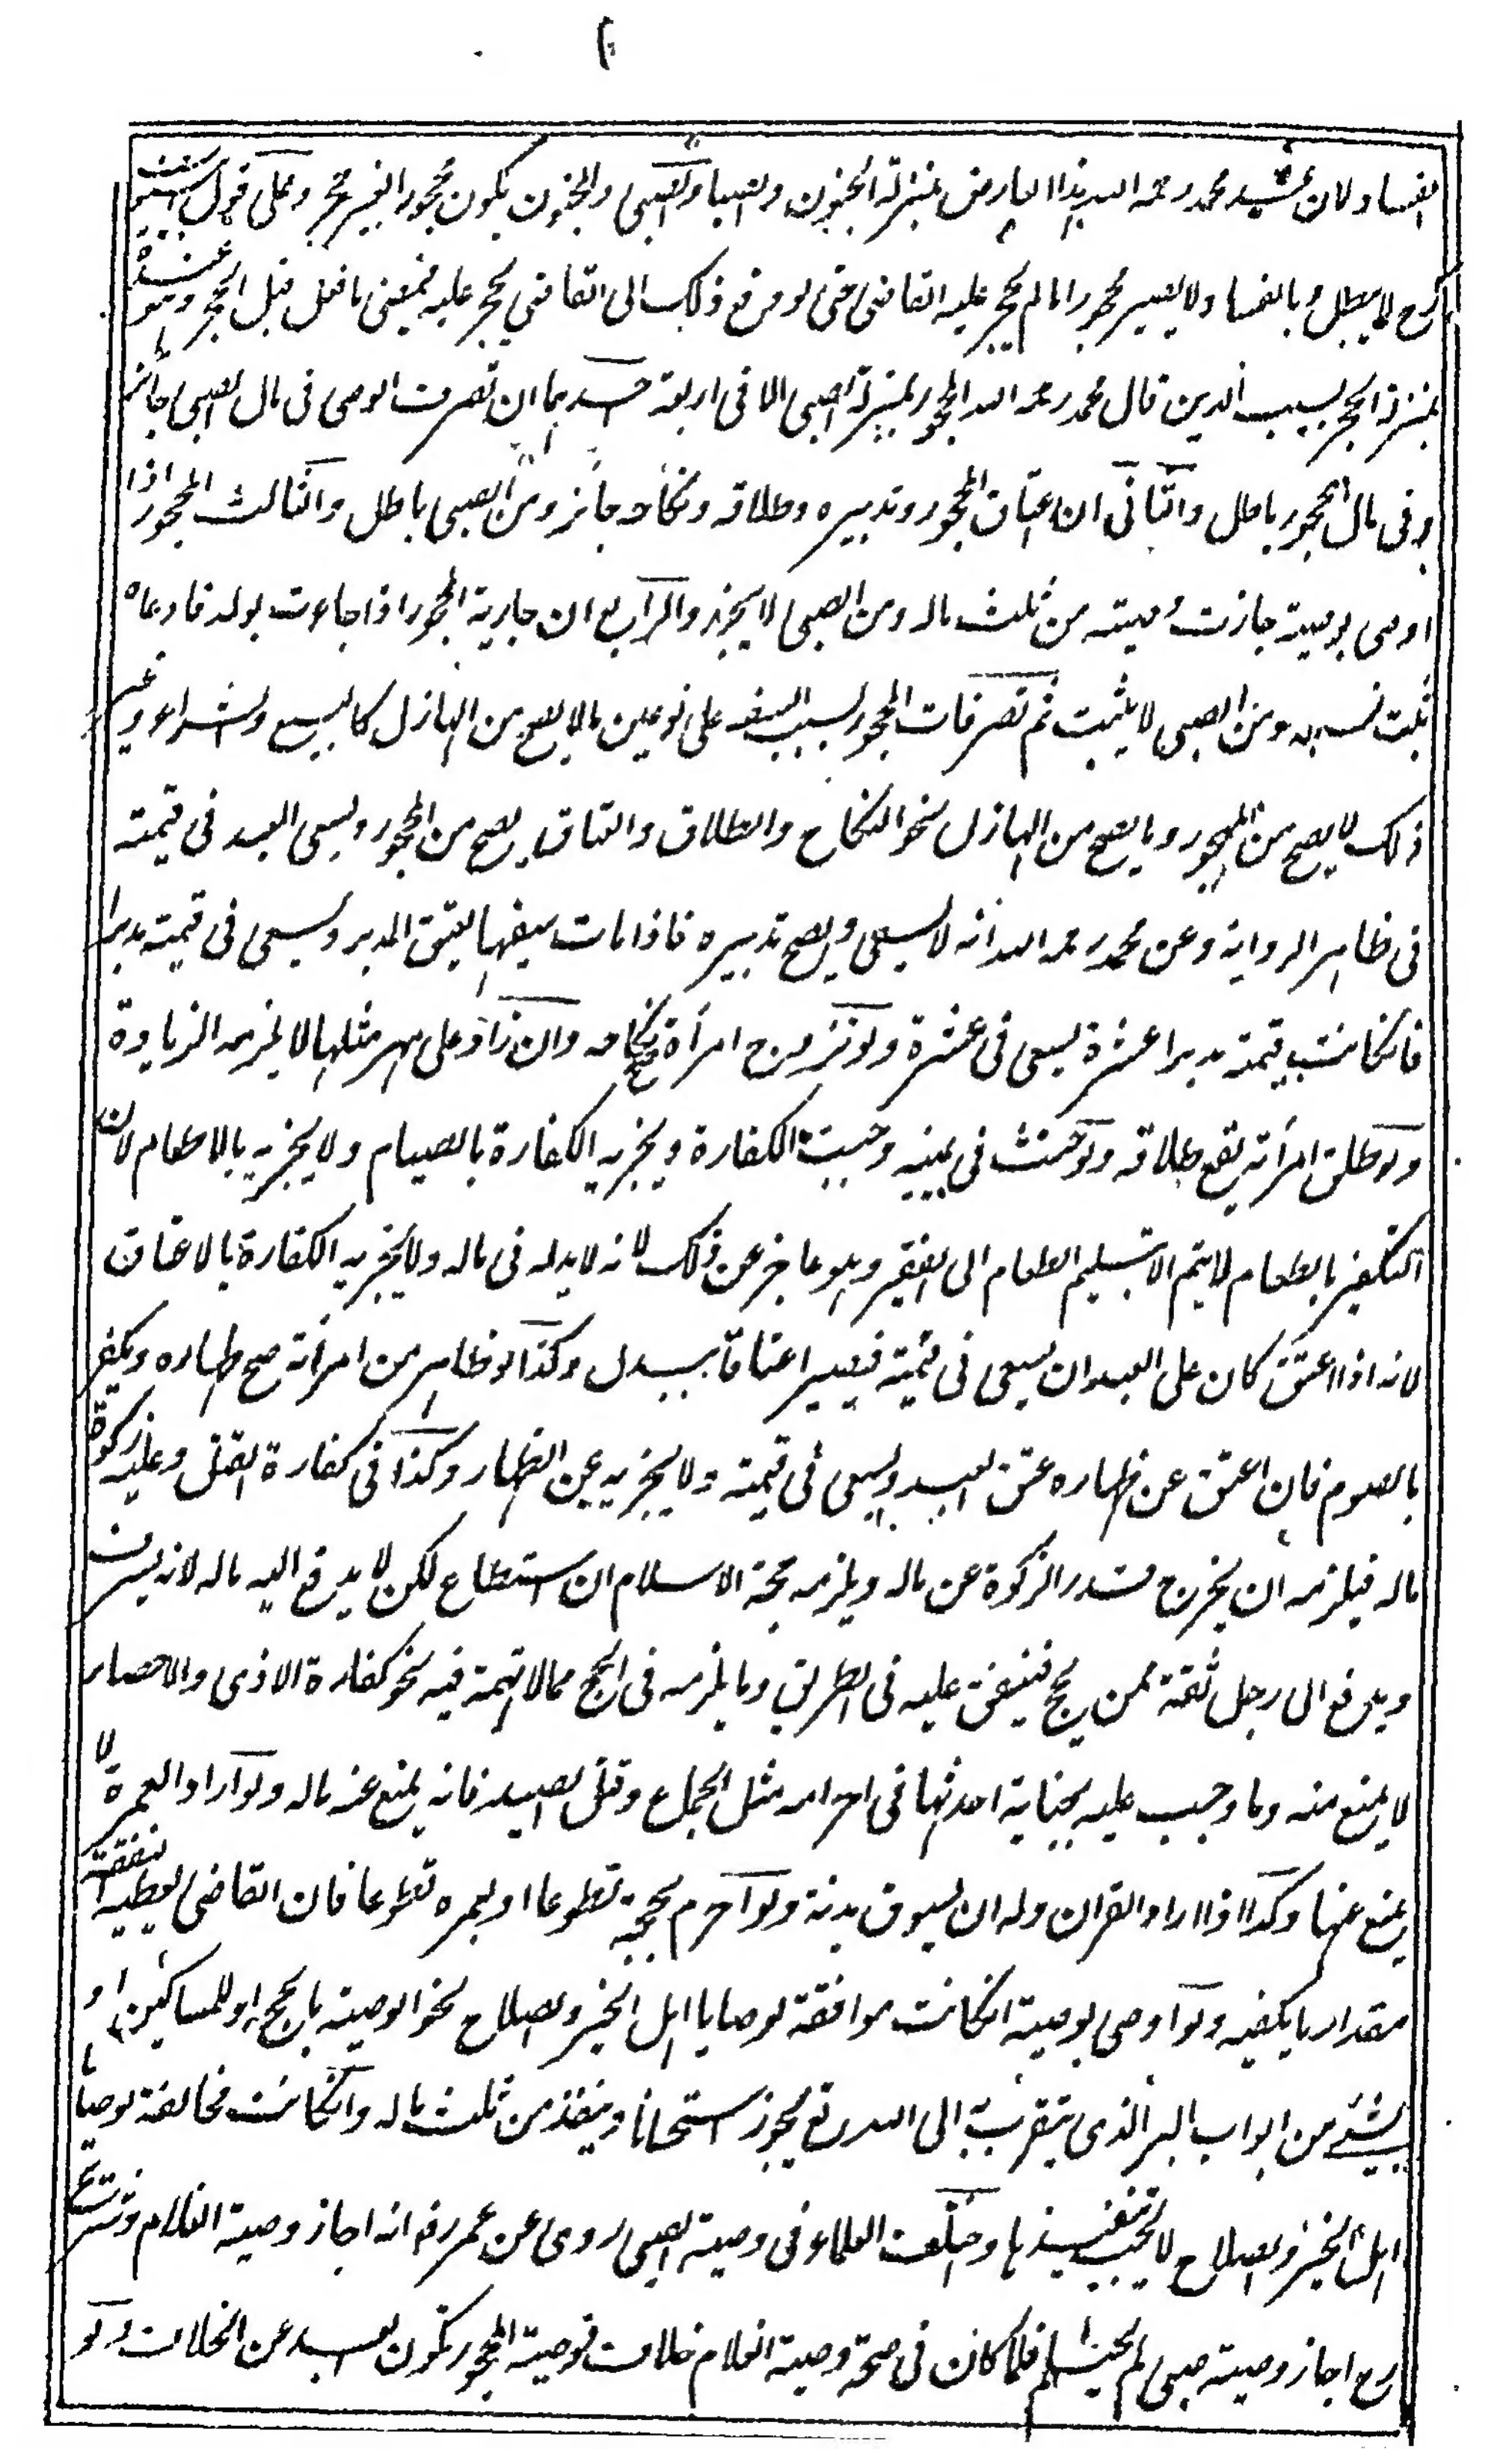 الفساد لان عند محمد رحمه الله هذا العارض بمنزلة الجنون والصبا والصبي والمجنون يكون محجورا بغير حجر وعلى قول ابي يوسف
رح لا يبطل بالفساد ولا يصير محجورا مالم يحجر عليه القاضي حتى لو رفع ذلك الى القاضي يحجر عليه فيمضى ما فعل قبل الحجر وهو عنده
بمنزلة الحجر بسبب الدين قال محمد رحمه الله المحجور بمنزلة الصبي الا في اربعة احدها ان تصرف الوصى فى مال الصبي جائز
وفى مال المحجور باطل والثانى ان اعتاق المحجور وتدبيره وطلاقه ونكاحه جائز ومن الصبي باطل والثالث المحجور اذا
اوصى بوصية جازت وصيته من ثلث ماله ومن الصبى لا يجوز والرابع ان جارية المحجور اذا جاءت بولد فادعاه
ثبت نسبه ومن الصبى لا يثبت ثم تصرفات المحجور بسبب السفه على نوعين مالا يصح من الهازل كالبيع والشراء وغير
ذلك لا يصح من المحجور وما يصح من الهازل نحو النكاح والطلاق والعتاق يصح من المحجور ويسعى العبد فى قيمته
فى ظاهر الرواية وعن محمد رحمه الله انه لا يسعى ويصح تدبيره فاذا مات سفيها يعتق المدبر ويسعى فى قيمته مدبرا
فانكانت قيمته مدبرا عشرة يسعى فى عشرة ولو تزوج امرأة صح نكاحه وان زاد على مهر مثلها لا يلزمه الزيادة
ولو طلق امرأته يقع طلاقه ولو حنث فى يمينه وجبت الكفارة ويجزيه الكفارة بالصيام ولا يجزيه بالاطعام لان
التكفير بالطعام لا يتم الا بتسليم الطعام الى الفقير وهو عاجز عن ذلك لانه لا يد له فى ماله ولا يجزيه الكفارة بالاعتاق
لانه اذا اعتق كان على العبد ان يسعى فى قيمته فيصير اعتاقا ببدل وكذا لو ظاهر من امرأته صح ظهاره ويكفر
بالصوم فان اعتق عن ظهاره عتق العبد ويسعى فى قيمته ولا يجزيه عن الظهار وكذا فى كفارة القتل وعليه زكوة
ماله فيلزمه ان يخرج قدر الزكوة عن ماله ويلزمه حجة الاسلام ان استطاع لكن لا يدفع اليه ماله لانه يسرف
ويدفع الى رجل ثقة ممن يحج فينفق عليه فى الطريق وما يلزمه فى الحج مما لا تهمة فيه نحو كفارة الاذى والاحصار
لا يمنع منه وما وجب عليه بجناية احدثها فى احرامه مثل الجماع وقتل الصيد فانه يمنع عنه ماله ولو اراد العمرة لا
يمنع عنها وكذا اذا اراد القران وله ان يسوق بدنة ولو احرم بحجة تطوعا او بعمرة تطوعا فان القاضى يعطيه نفقة
مقدار ما يكفيه ولو اوصى بوصية انكانت موافقة لوصايا اهل الخير والصلاح نحو الوصية بالحج او للمساكين او
بشئ من ابواب البر الذى يتقرب به الى الله تع يجوز استحسانا وينفذ من ثلث ماله وانكانت مخالفة لوصايا
اهل الخير والصلاح لا يجب تنفيذها واختلف العلماء فى وصية الصبى روى عن عمر رض انه اجاز وصية الغلام وشريح
رح اجاز وصية صبى لم يحتلم فلما كان فى صحة وصية الغلام خلاف فوصية المحجور تكون ابعد عن الخلاف ولو